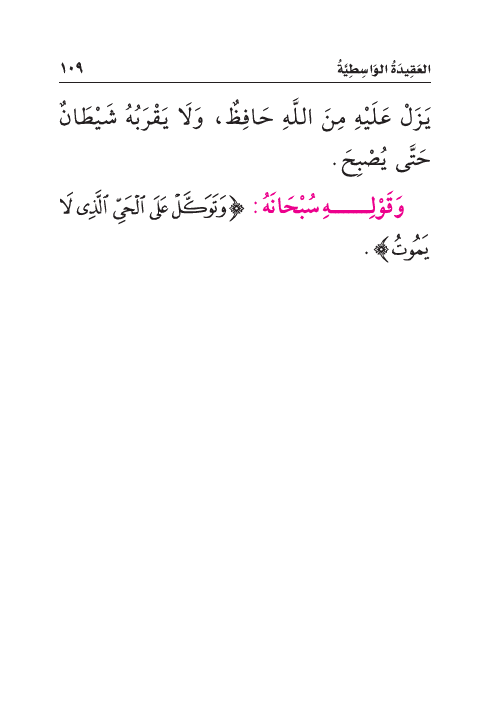 العَقِيدَةُ الوَاسِطِيَّةُ ١٠٩
يَزَلْ عَلَيْهِ مِنَ اللَّهِ حَافِظٌ، وَلَا يَقْرَبُهُ شَيْطَانٌ
حَتَّى يُصْبِحَ.
وَقَوْلِـــــهِ سُبْحَانَهُ: ﴿وَتَوَكَّلْ عَلَى ٱلْحَيِّ ٱلَّذِى لَا
يَمُوتُ﴾.